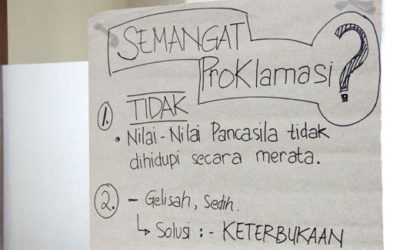 SEMANGAT
ProKlamasi ?
1. TIDAK
• Nilai-Nilai Pancasila tidak
dihidupi secara merata.
2. - Gelisah, Sedih.
↳ Solusi : - KETERBUKAAN